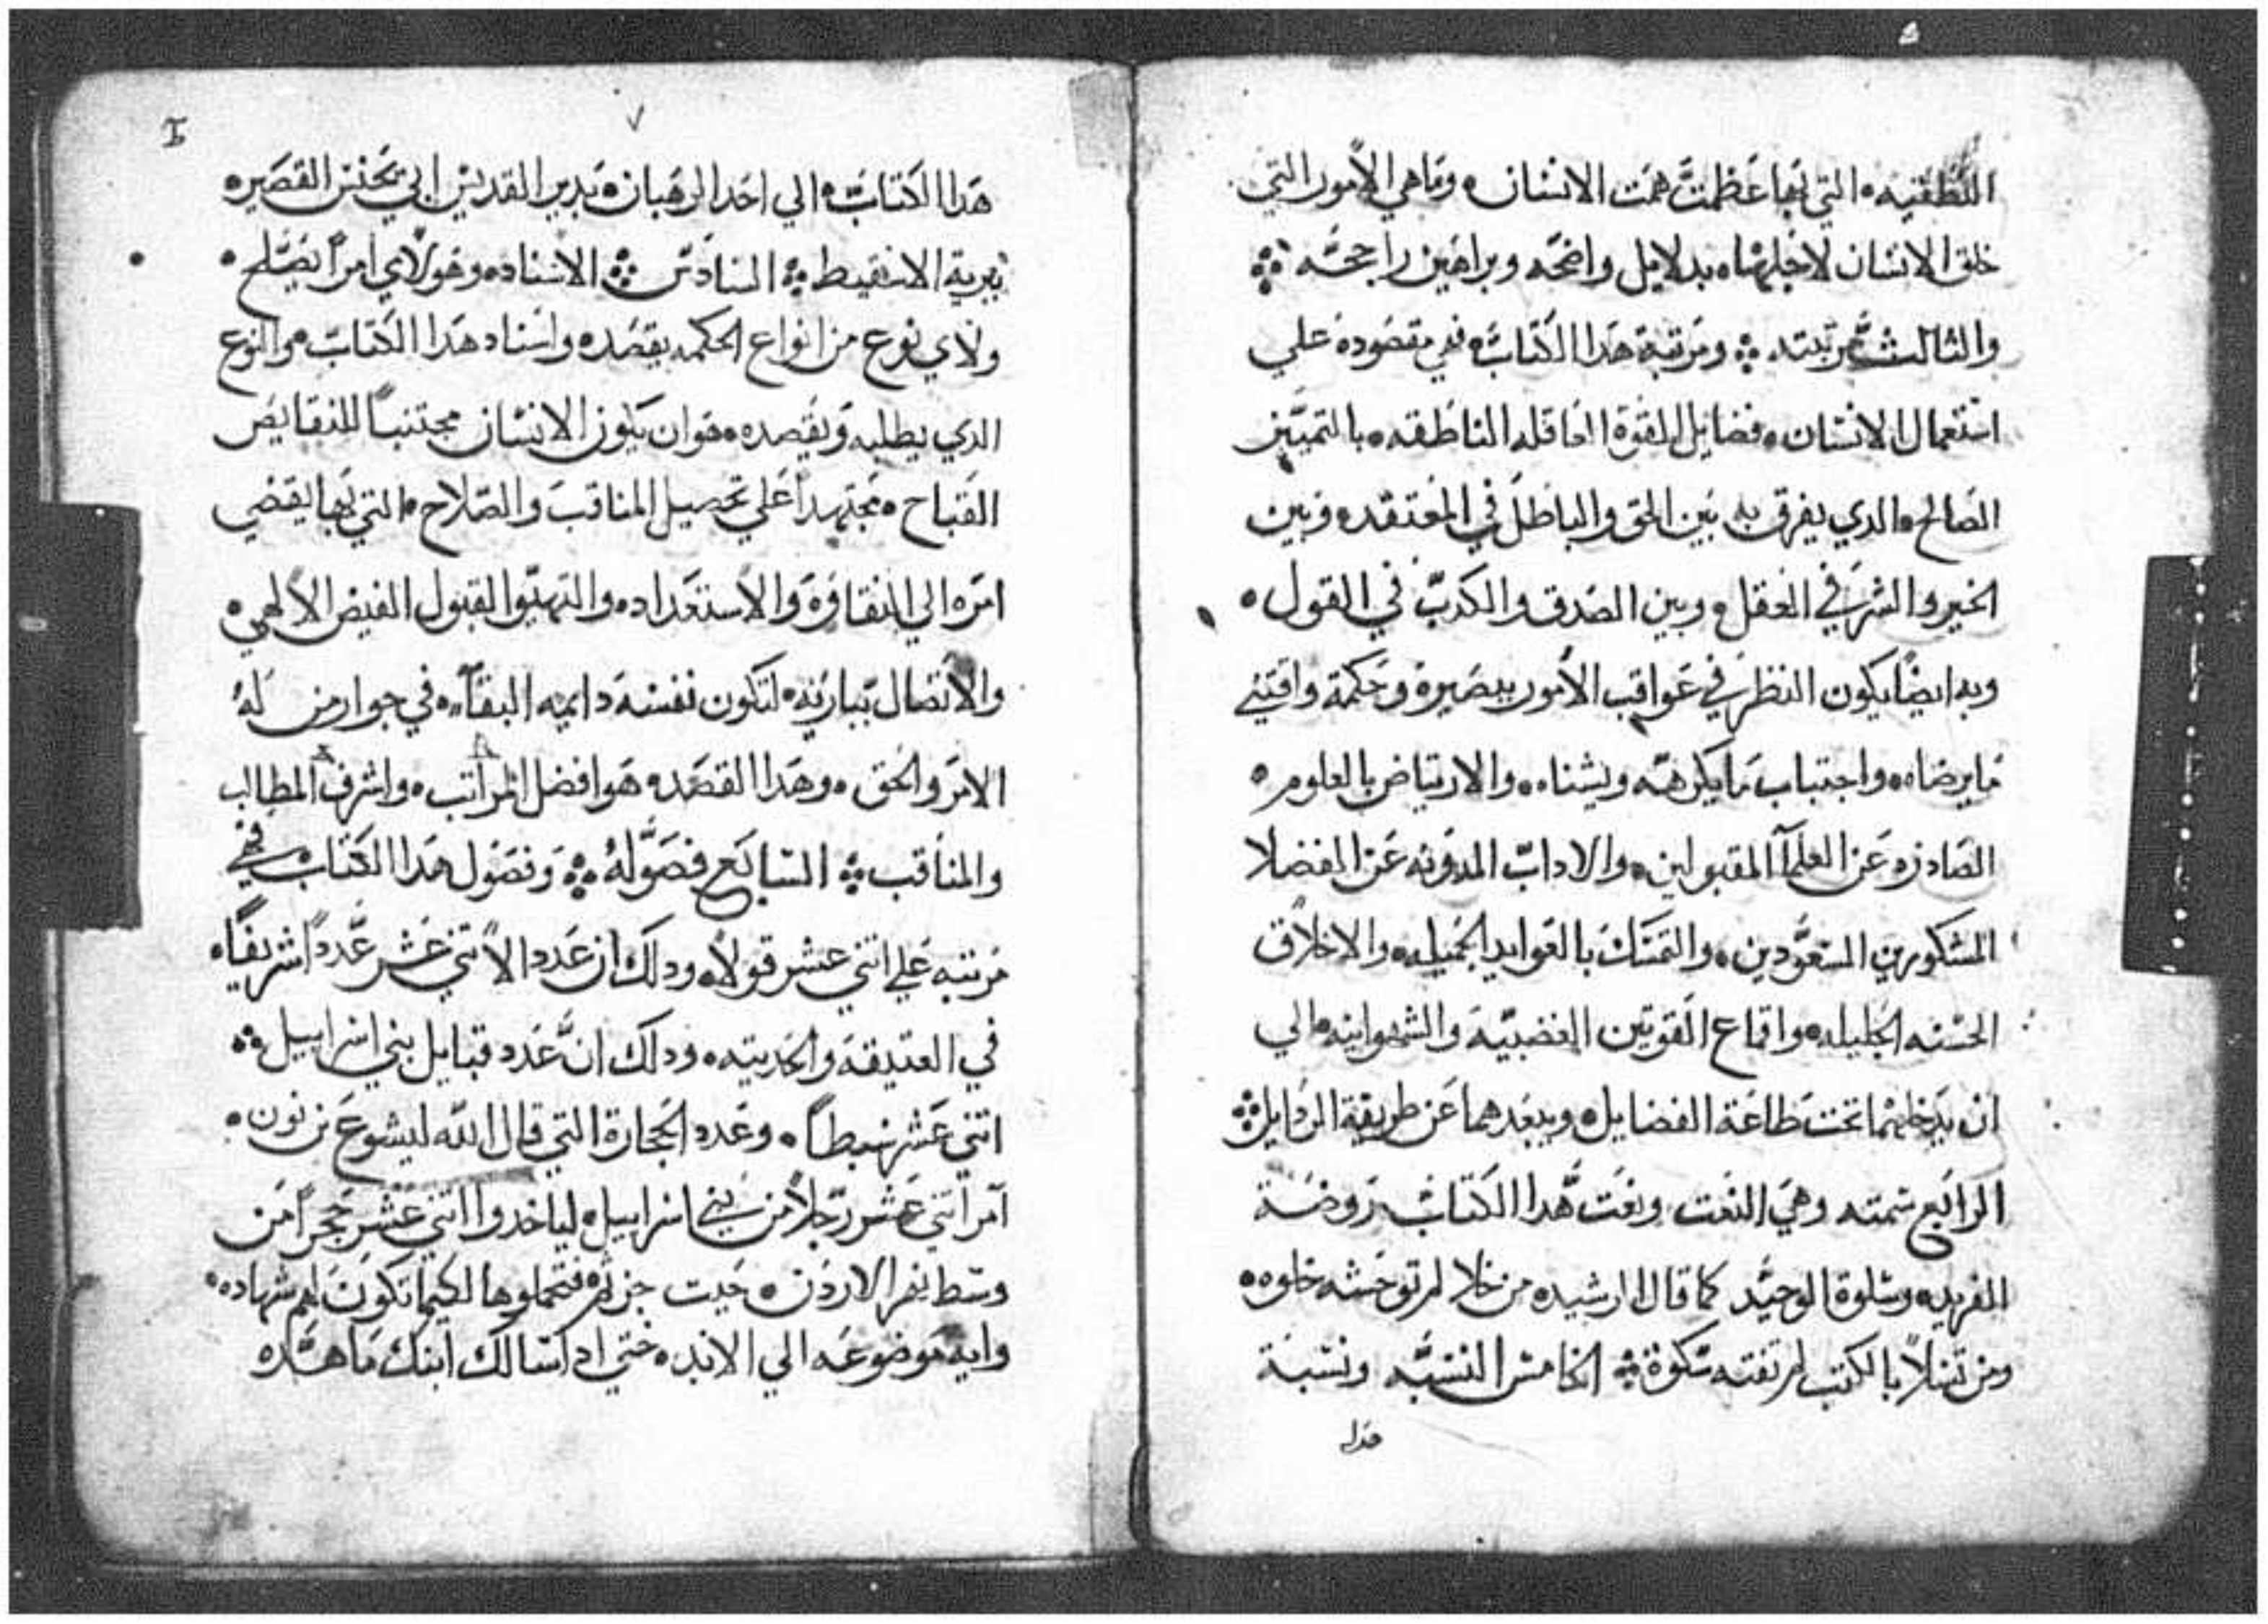 النطقيه ۰ التي بها عظمت همت الانسان ۰ وما هي الأمور التي
خلق الانسان لاجلها ۰ بدلايل واضحه وبراهين راجحه
والثالث مرتبته ۰ ومرتبة هدا الكتاب ۰ في مقصوده علي
استعمال الانسان ۰ فضايل القوة العاقله الناطقه ۰ بالتمييز
الصالح ۰ الدي يفرق به بين الحق والباطل في المعتقد ۰ وبين
الخير والشر في العقل ۰ وبين الصدق والكدب في القول ۰
وبه ايضًا يكون النظر في عواقب الأمور ببصيرة وحكمة واقتني
ما يرضاه ۰ واجتباب ما يكرهه ويشناه ۰ والارتياض بالعلوم ۰
الصادره عن العلمآ المقبولين ۰ والاداب المدونه عن الفضلا
المشكورين المسعودين ۰ والتمسك بالعوايد الجميله ۰ والاخلاق
الحسنه الجليله ۰ واقماع القوتين الغضبية والشهوانيه ۰ الي
ان يدخلهما تحت طاعة الفضايل ۰ ويبعدهما عن طريقة الردايل
الرابع سمته وهي النعت ونعت هدا الكتاب روضة
الفريد ۰ وسلوة الوحيد كما قال الرشيد ۰ من خلا لم توحشه خلوه ۰
ومن تسلاً بالكتب لم تفته سلوة الخامس النسبه ونسبة
هدا
٧
هدا الكتاب ۰ الي احد الرهبان ۰ بدير القديس ابي يحنس القصير ۰
ببرية الاسقيط السادس الاسناد ۰ وهو لأي امرًا يصلح ۰
ولاي نوع من انواع الحكمه يقصد ۰ واسناد هدا الكتاب ۰ هو النوع
الدي يطلبه ويقصده ۰ هو ان يكون الانسان مجتنبًا للنقايص
القباح ۰ مجتهدًا علي تحصيل المناقب والصلاح ۰ التي بها يقضي
امره الي النقاوة والأستعداد ۰ والتهيّوا لقبول الفيض الألهي ۰
والأتصال بباريه ۰ لتكون نفسه دايمه البقآء ۰ في جوار من له
الامر والحق ۰ وهدا القصد ۰ هو افضل المراتب ۰ واشرف المطالب
والمناقب السابع فصوله وفصول هدا الكتاب في
مرتبه علي اتني عشر قولاً ۰ ودلك ان عدد الأتني عشر عددًا شريفًا ۰
في العتيقه والحديته ۰ ودلك انّ عدد قبايل بني اسراييل
اتني عشر سبطًا ۰ وعدد الحجارة التي قال الله ليشوع بن نون ۰
آمر اتني عشر رجلاً من بني اسراييل ۰ لياخدوا اتني عشر حجرًا من
وسط نهر الاردن ۰ حيت فتحملوها لكيما تكون لهم شهاده ۰
وايه موضوعه الي الابد ۰ حتي ادا سالك ابنك ما هده